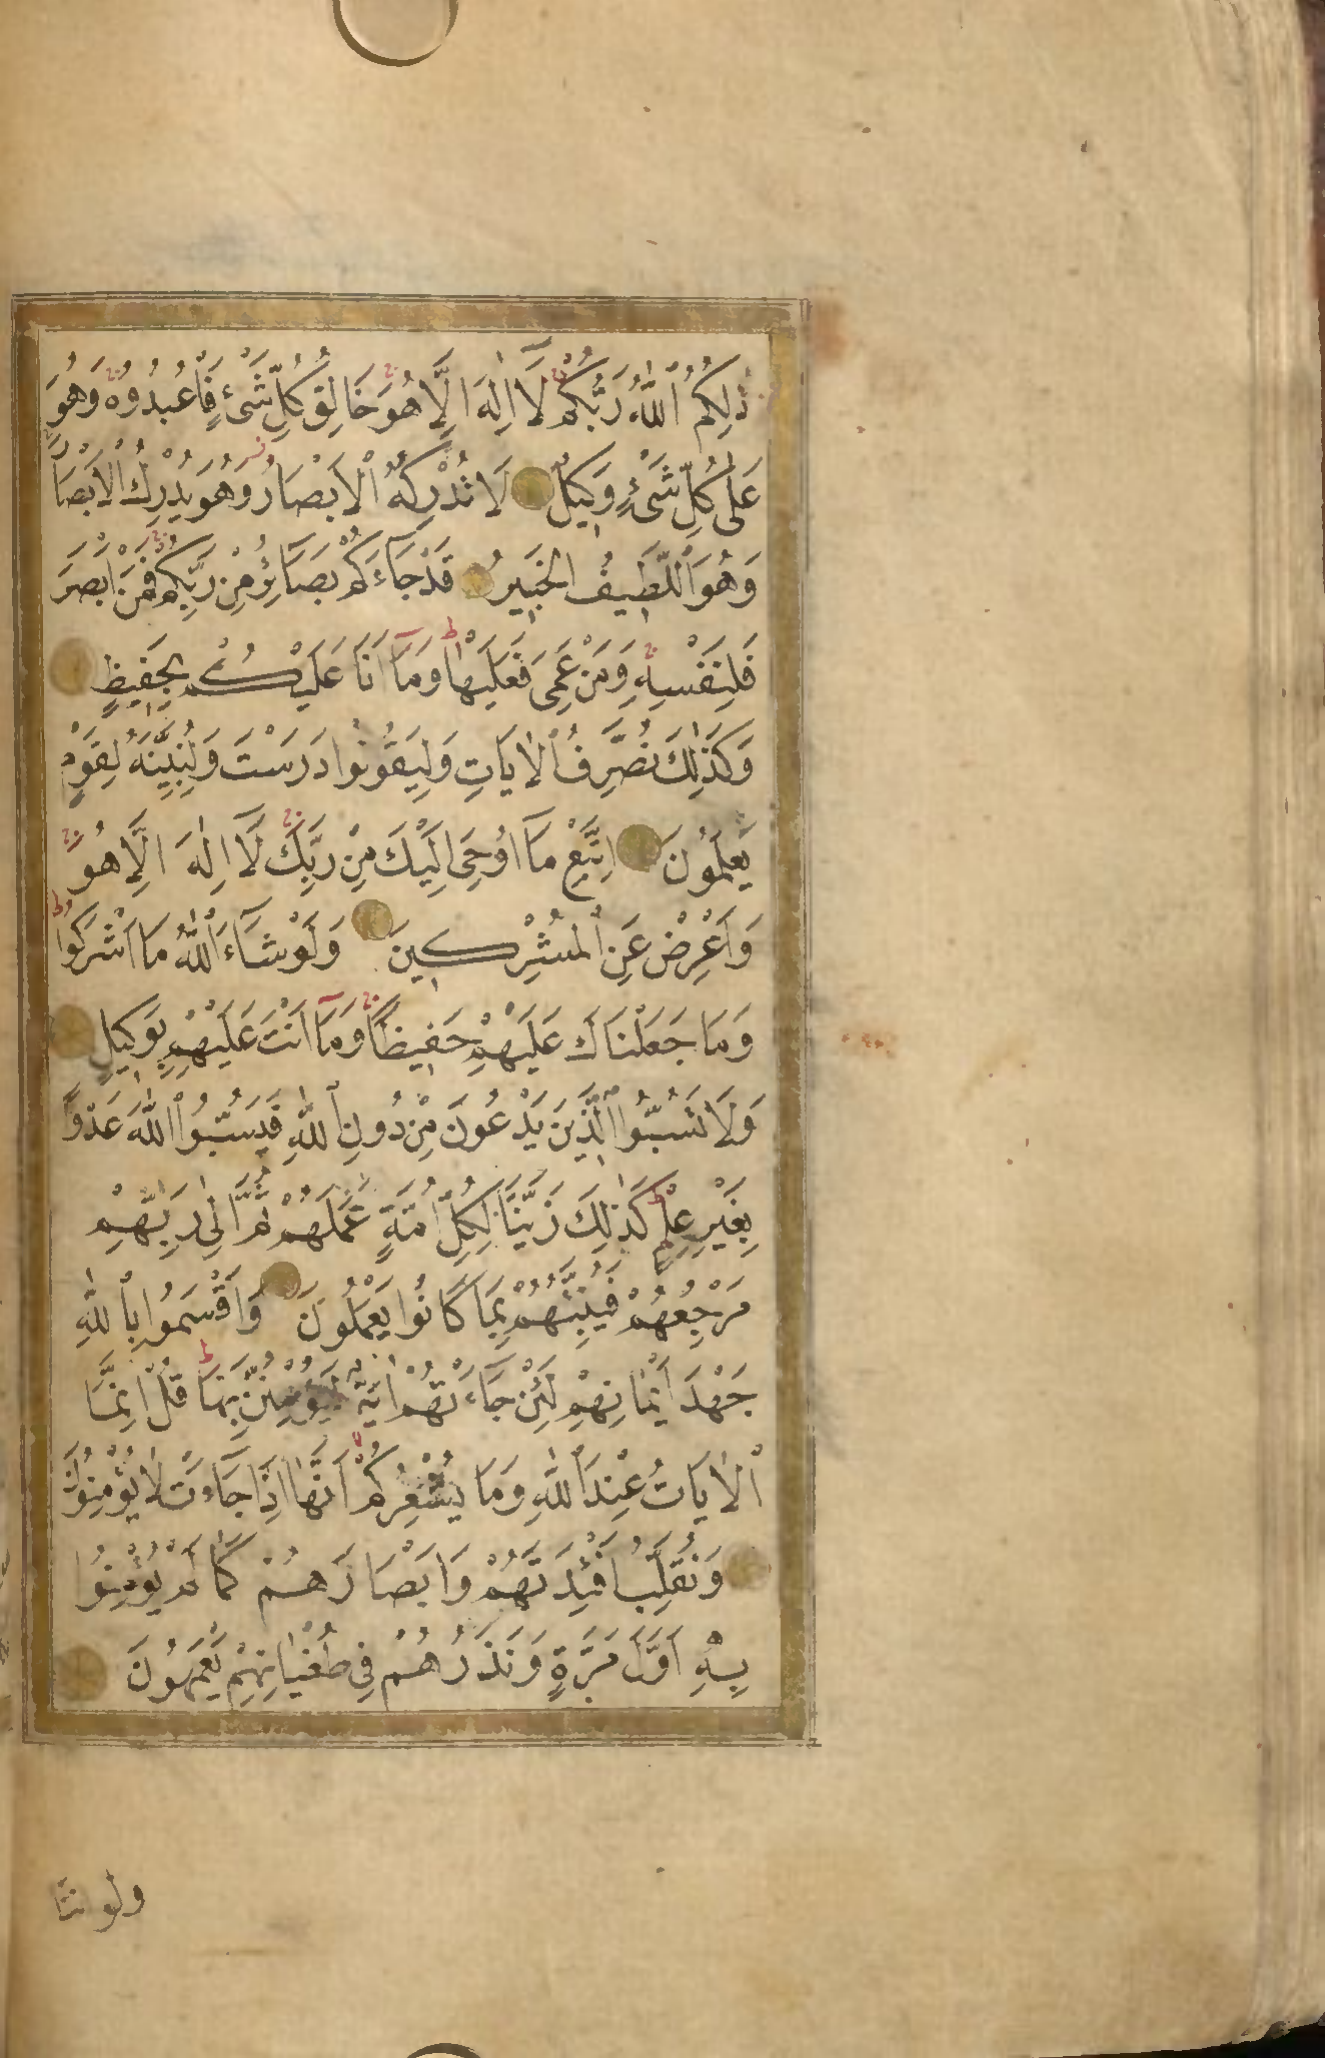 ذٰلِكُمُ ٱللّٰهُ رَبُّكُمْ لَٓا اِلٰهَ اِلَّا هُوَ خَالِقُ كُلِّ شَىْءٍ فَاعْبُدُوهُ وَهُوَ
عَلٰى كُلِّ شَىْءٍ وَكِيلٌ لَا تُدْرِكُهُ ٱلْاَبْصَارُ وَهُوَ يُدْرِكُ ٱلْاَبْصَارَ
وَهُوَ ٱللَّطِيفُ الْخَبِيرُ قَدْ جَٓاءَكُمْ بَصَٓائِرُ مِنْ رَبِّكُمْ فَمَنْ اَبْصَرَ
فَلِنَفْسِهِ وَمَنْ عَمِىَ فَعَلَيْهَا وَمَٓا اَنَا عَلَيْكُمْ بِحَفِيظٍ
وَكَذٰلِكَ نُصَرِّفُ ٱلْاٰيَاتِ وَلِيَقُولُوا دَرَسْتَ وَلِنُبَيِّنَهُ لِقَوْمٍ
يَعْلَمُونَ اِتَّبِعْ مَٓا اُوحِىَ اِلَيْكَ مِنْ رَبِّكَ لَٓا اِلٰهَ اِلَّا هُوَ
وَاَعْرِضْ عَنِ ٱلْمُشْرِكِينَ وَلَوْ شَٓاءَ ٱللّٰهُ مَا اَشْرَكُوا
وَمَا جَعَلْنَاكَ عَلَيْهِمْ حَفِيظًا وَمَٓا اَنْتَ عَلَيْهِمْ بِوَكِيلٍ
وَلَا تَسُبُّوا ٱلَّذِينَ يَدْعُونَ مِنْ دُونِ ٱللّٰهِ فَيَسُبُّوا ٱللّٰهَ عَدْوًا
بِغَيْرِ عِلْمٍ كَذٰلِكَ زَيَّنَّا لِكُلِّ اُمَّةٍ عَمَلَهُمْ ثُمَّ اِلٰى رَبِّهِمْ
مَرْجِعُهُمْ فَيُنَبِّئُهُمْ بِمَا كَانُوا يَعْمَلُونَ وَاَقْسَمُوا بِٱللّٰهِ
جَهْدَ اَيْمَانِهِمْ لَئِنْ جَٓاءَتْهُمْ اٰيَةٌ لَيُؤْمِنُنَّ بِهَا قُلْ اِنَّمَا
ٱلْاٰيَاتُ عِنْدَ ٱللّٰهِ وَمَا يُشْعِرُكُمْ اَنَّهَٓا اِذَا جَٓاءَتْ لَا يُؤْمِنُونَ
وَنُقَلِّبُ اَفْئِدَتَهُمْ وَاَبْصَارَهُمْ كَمَا لَمْ يُؤْمِنُوا
بِهٖٓ اَوَّلَ مَرَّةٍ وَنَذَرُهُمْ فِى طُغْيَانِهِمْ يَعْمَهُونَ
ولو اننا